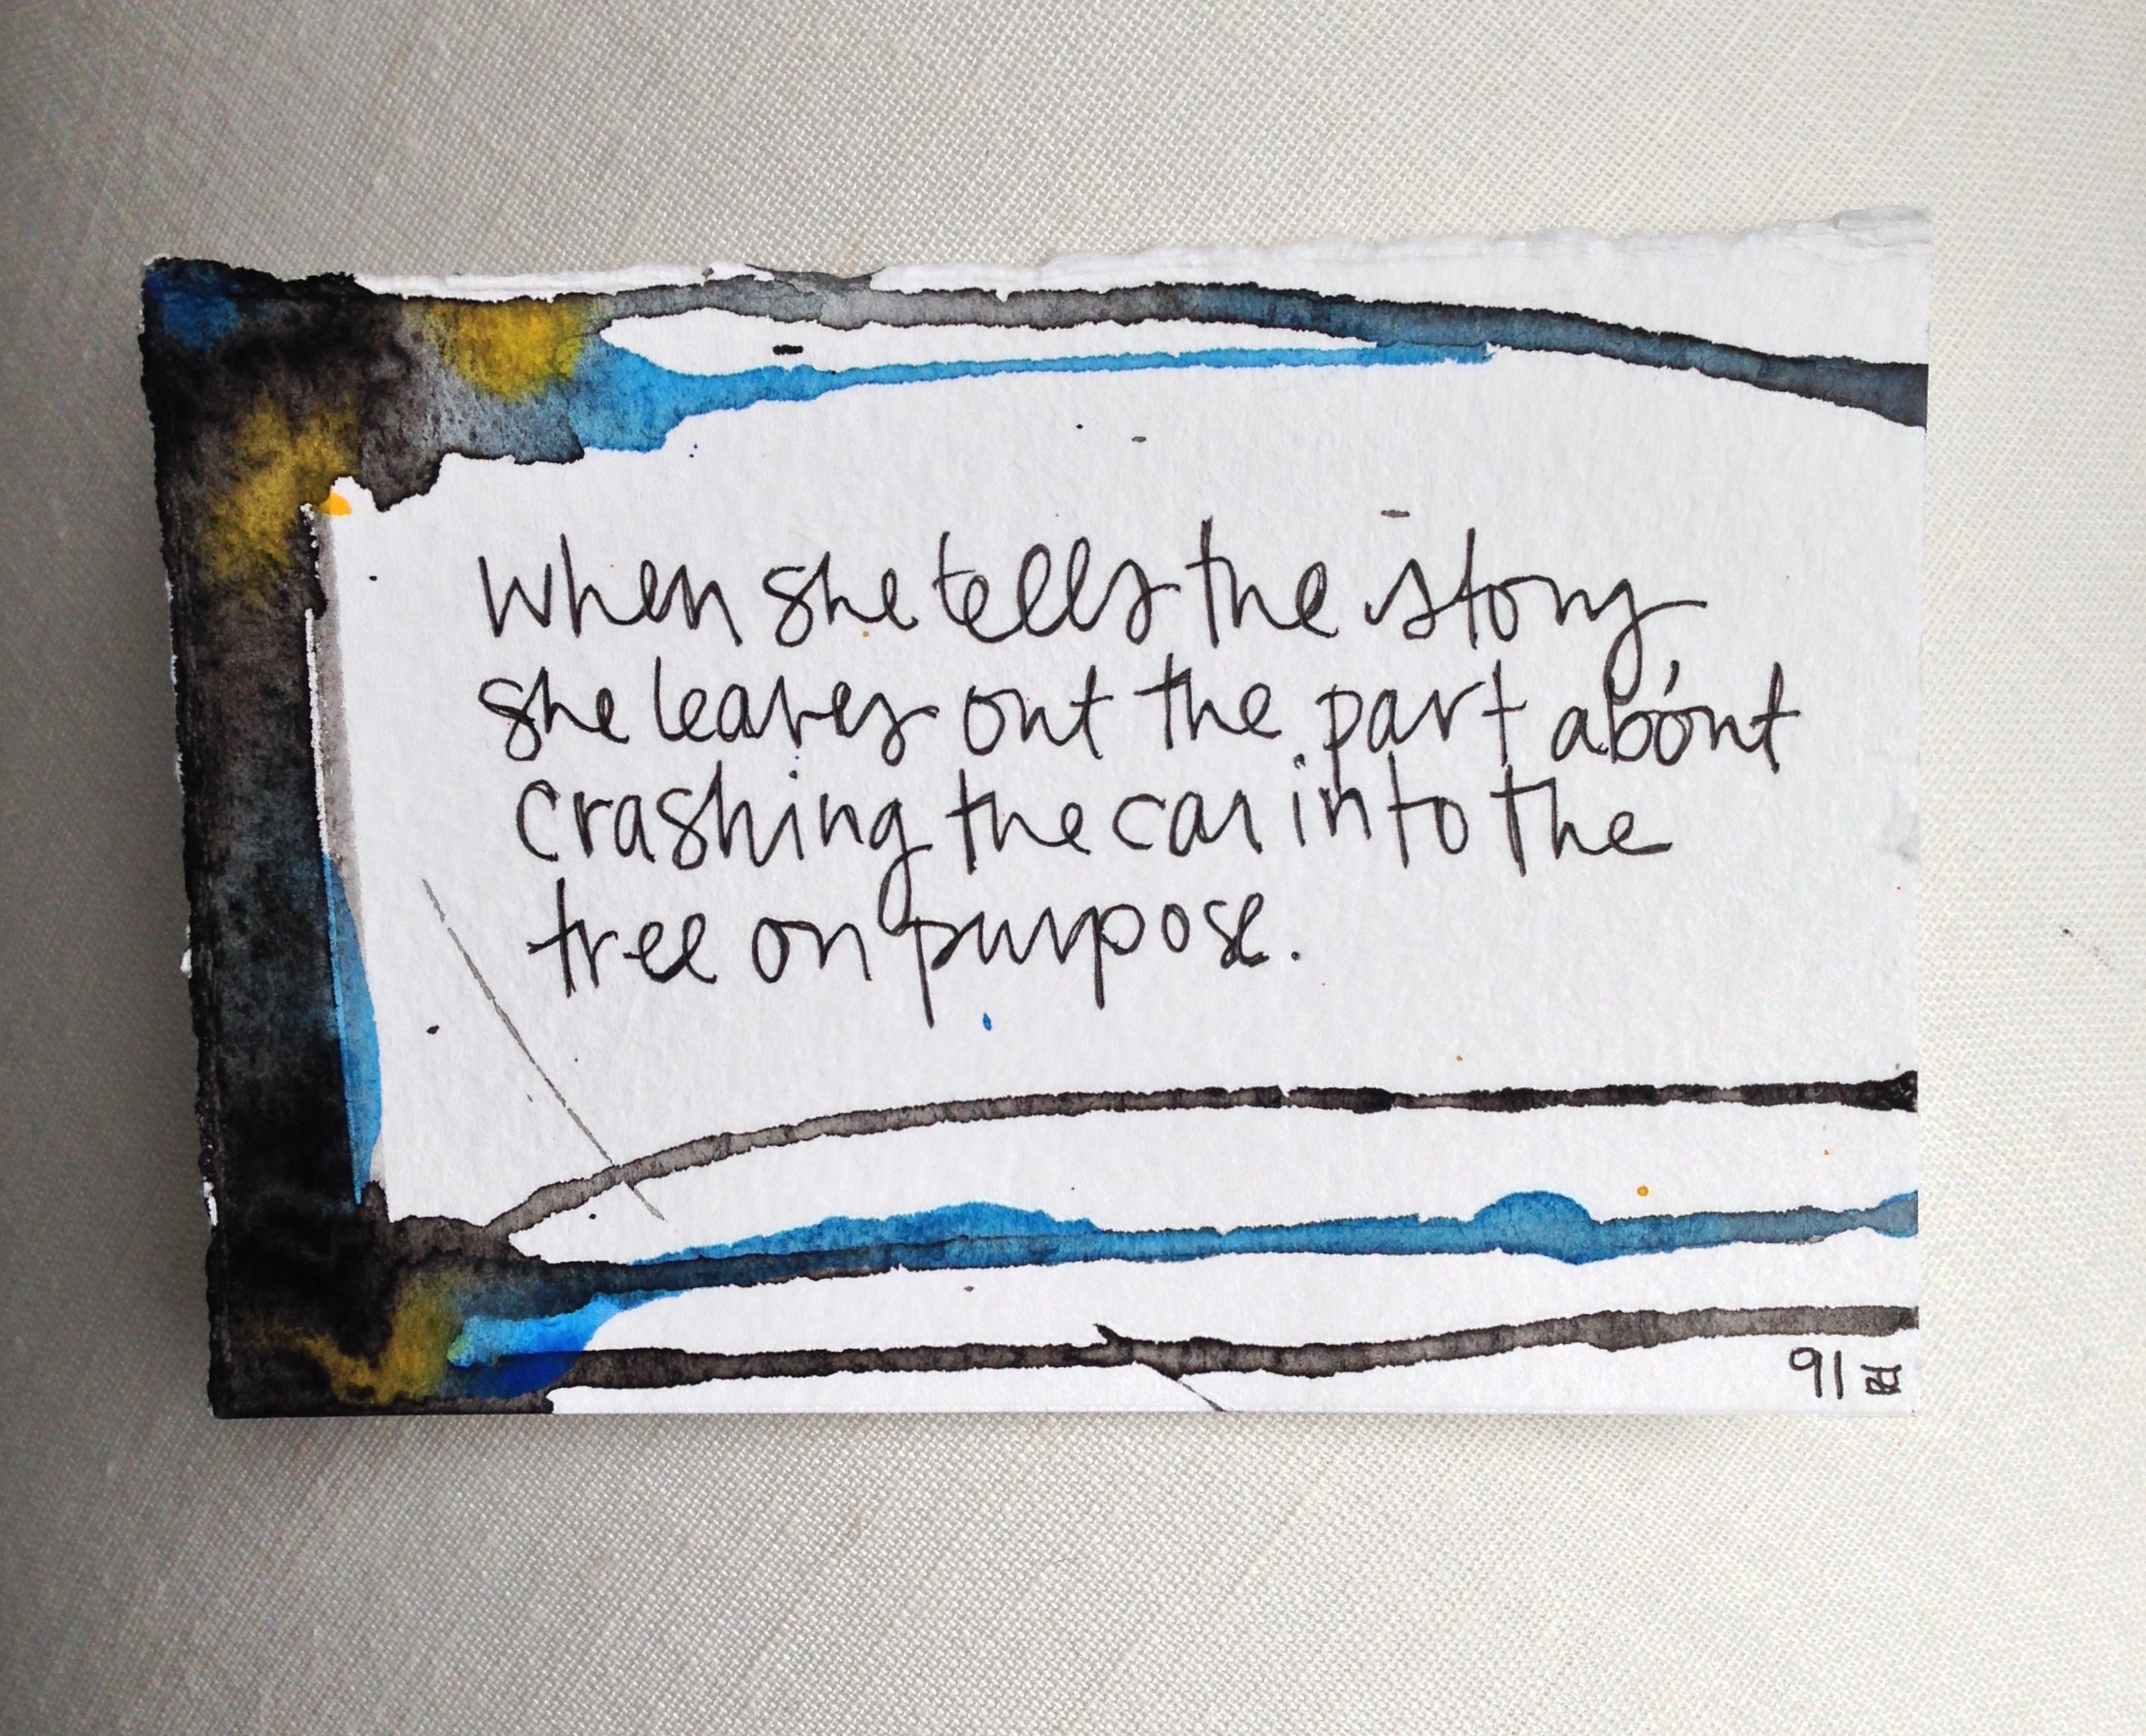 when she tells the story
she leaves out the part about
crashing the car into the
tree on purpose.
91